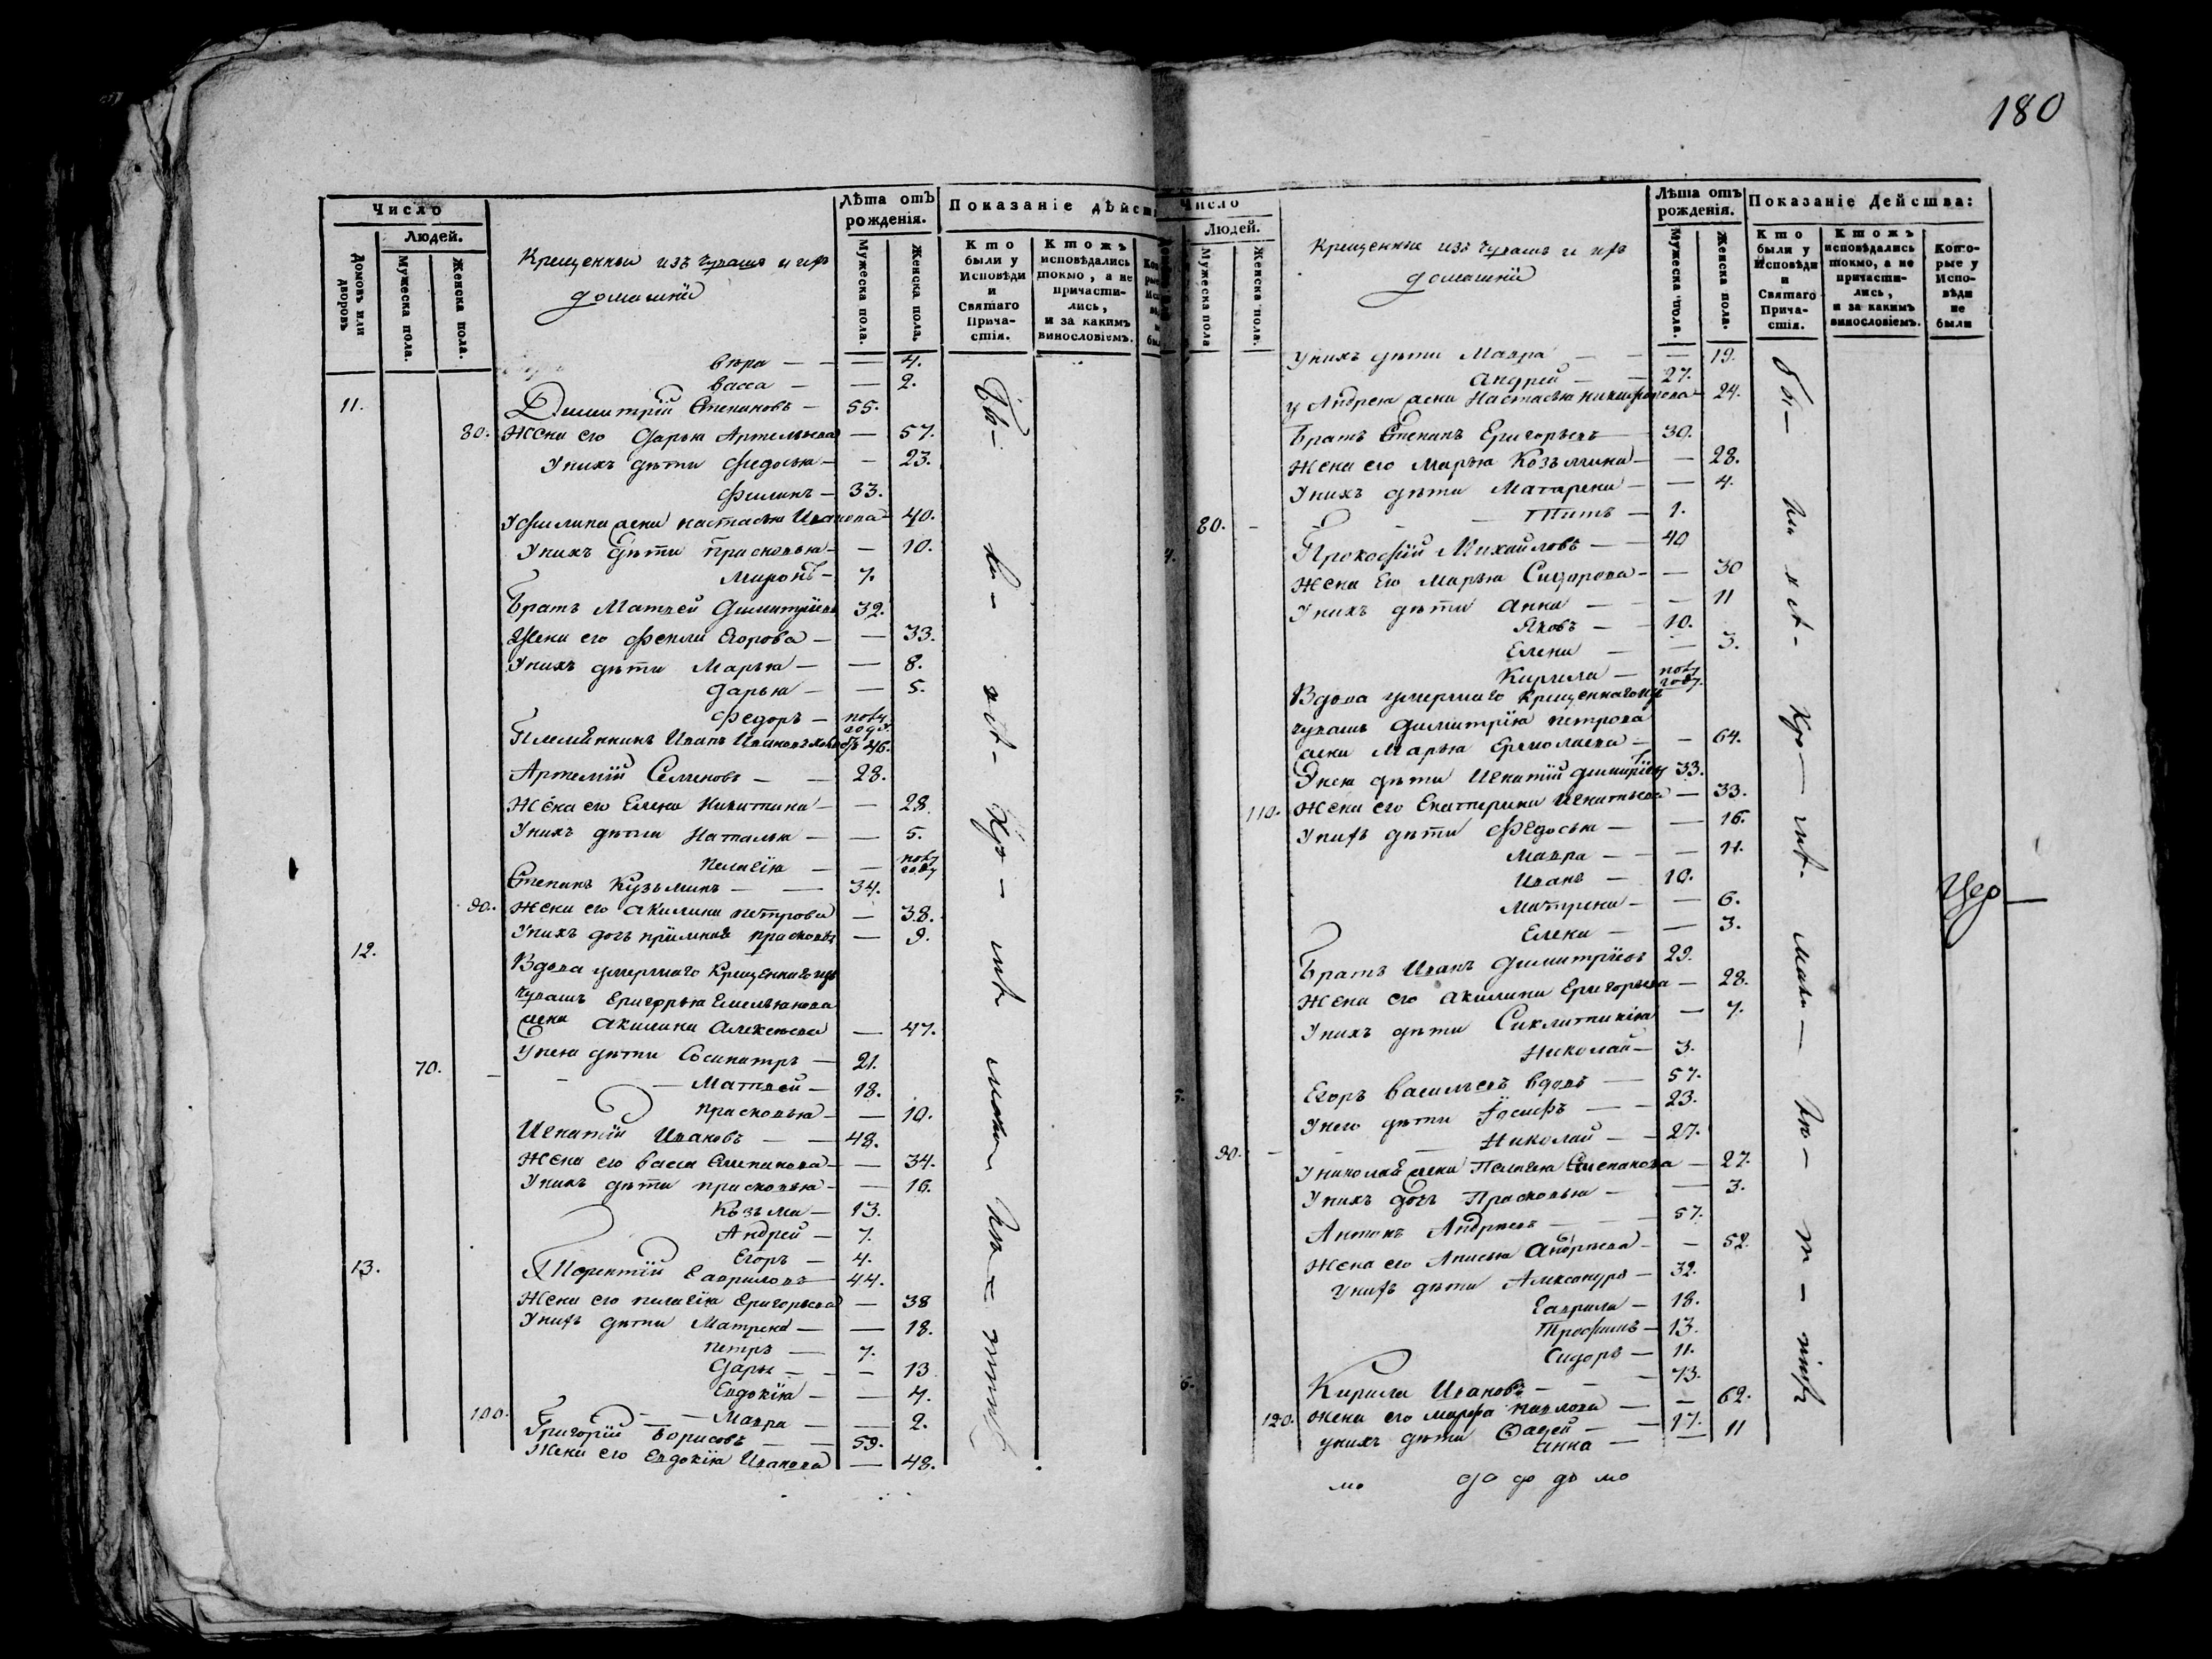 180
Число
Людей.
Домовъ или дворовъ
Мужеска пола.
Женска пола.
Крещенныи изъ чувашъ и ихъ
домашнiи
Лѣта отъ рожденiя.
Мужеска пола.
Женска пола.
Показанiе дѣйст
Кто были у Исповѣди и Святаго Прича-стiя.
Ктожъ исповѣдались токмо, а не причасти-лись, и за какимъ винословiемъ.
Вѣра — — 4.
Васса — — 2.
11. Димитрiй Степановъ — 55.
80. Жена его Дарья Артемьева — 57.
У нихъ дѣти Федосья — — 23.
Филипъ — 33.
У Филипа жена Настасья Иванова — 40.
У нихъ дѣти Прасковья — — 10.
Миронъ — 7.
Братъ Матвей Димитрiевъ 32.
Жена его Фекла Егорова — — 33.
У нихъ дѣти Марья — — 8.
Дарья — — 5.
Федоръ — полу года.
Племянникъ Иванъ Ивановъ 46.
Артемiй Семеновъ — — 28.
Жена его Елена Никитина — — 28
У нихъ дѣти Наталья — — 5.
Пелагiя — — полу году
Степанъ Кузьминъ — — 34.
90. Жена его Акилина Петрова — 38.
У нихъ дочь прiимная Прасковья — 9.
12. Вдова умершаго Крещеннаго изъ
чувашъ Григорья Емельянова
жена Акилина Алексеева — 47.
У нея дѣти Сосипатръ — 21.
70. — — — Матвей — 18.
Прасковья — — 10.
Игнатiй Ивановъ — — 48.
Жена его Васса Степанова — — 34.
У нихъ дѣти Прасковья — — 16.
Козьма — 13.
Андрей — 7.
Егоръ — 4.
13. Терентiй Гавриловъ — 44.
Жена его Пелагiя Григорьева — 38
У нихъ дѣти Матрена — — 18.
Петръ — 7.
Дарья — — 13
Евдокiя — — 4.
100. — — Мавра — — 2.
Григорiй Борисовъ — — 59.
Жена его Евдокiя Иванова — 48.
Число
Людей.
Мужеска пола
Женска пола.
Крещенныи изъ чувашъ и ихъ
домашнiи
Лѣта отъ рожденiя.
Мужеска пола.
Женска пола.
Показанiе Дейсшва:
Кто были у Исповѣди и Святаго Прича-стiя.
Ктожъ исповѣдались токмо, а не причасти-лись, и за какимъ винословiемъ.
Кото-рые у Испо-вѣди не были
У нихъ дѣти Мавра — — — 19.
Андрей — — 27.
У Андрея жена Настасья Никифорова — 24.
Братъ Степанъ Григорьевъ — 30.
Жена его Марья Козьмина — — 28.
У нихъ дѣти Матарена — — 4.
80. — — — Титъ — 1.
Прокофiй Михайловъ — — 40
Жена его Марья Сидорова — — 30
У нихъ дѣти Анна — — — 11
Яковъ — — 10.
Елена — — 3.
Кирила — полу году.
Вдова умершаго Крещеннаго изъ
чувашъ Димитрiя Петрова
жена Марья Ермолаева — — 64.
У нея дѣти Игнатiй Димитрiевъ 33.
110. Жена его Екатерина Игнатьева — 33.
У нихъ дѣти Федосья — — 16.
Мавра — — — 11.
Иванъ — 10.
Матрена — — 6.
Елена — — 3.
Братъ Иванъ Димитрiевъ 29.
Жена его Акилина Григорьева — 28.
У нихъ дѣти Синклитикiя — 7.
Николай — 3.
Егоръ Васильевъ вдовъ — 57.
У него дѣти Iосифъ — — 23.
90. — — — Николай — — 27.
У Николая жена Пелагея Степанова — 27.
У нихъ дочь Прасковья — — 3.
Антонъ Андреевъ — — 57.
Жена его Анисья Андреева — — 52.
У нихъ дѣти Александръ — 32.
Гаврила — 18.
Трофимъ — 13.
Сидоръ — 11.
Кирила Ивановъ — — — 73.
120. Жена его Марфа Павлова — — 62.
У нихъ дѣти Фадей — — 17.
Анна — — 11
Цер —